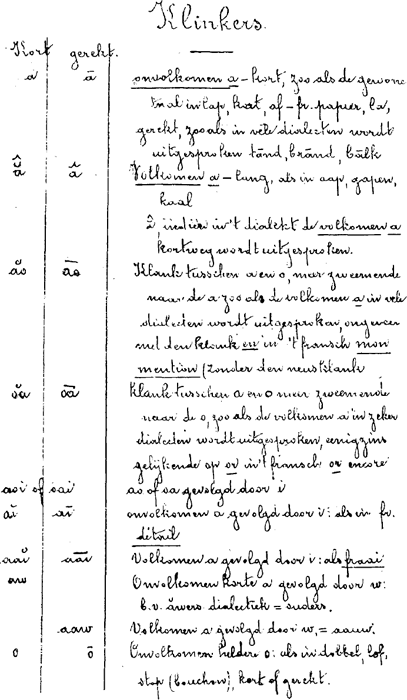 Klinkers.
Kort gerekt.
a ā onvolkomen a – kort, zoo als de gewone
in al in lap, kat, af – fr. papier, la,
gerekt, zooals in vele dialecten wordt
uitgesproken tānd, brānd, bālk
â Volkomen a – lang, als in aap, gapen,
kaal
indien in 't dialekt de volkomen a
kortweg wordt uitgesproken.
ăo āo Klank tusschen a en o, maar zweemende
naar de a zoo als de volkomen a in vele
dialecten wordt uitgesproken, ongeveer
met den klank on in 't fransch mon
mention (zonder den neusklank
ŏa ōa Klank tusschen a en o maar zweemende
naar de o, zoo als de volkomen a in zeker
dialecten wordt uitgesproken, eenigzins
gelijkende op or in 't fransch or encore
aoi of oai ao of oa gevolgd door i
aĭ aī onvolkomen a gevolgd door i: als in fr.
détail
aaĭ aāi Volkomen a gevolgd door i: als fraai
aw Onvolkomen korte a gevolgd door w:
b.v. āwers dialectisch = ouders.
aaw Volkomen a gevolgd door w, = aauw.
o ō Onvolkomen heldere o: als in dobbel, lof,
stop (bouchon), kort of gerekt.